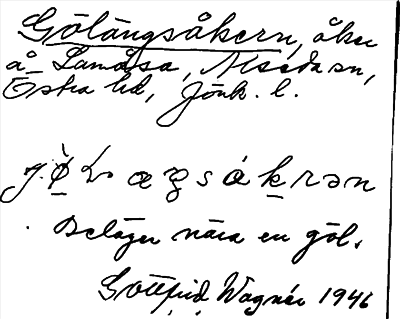 Gölängsåkern, åker
å Lamåsa, Alseda sn,
Östra hd, Jönk. l.
Belägen nära en göl.
Gottfrid Wagnér 1946